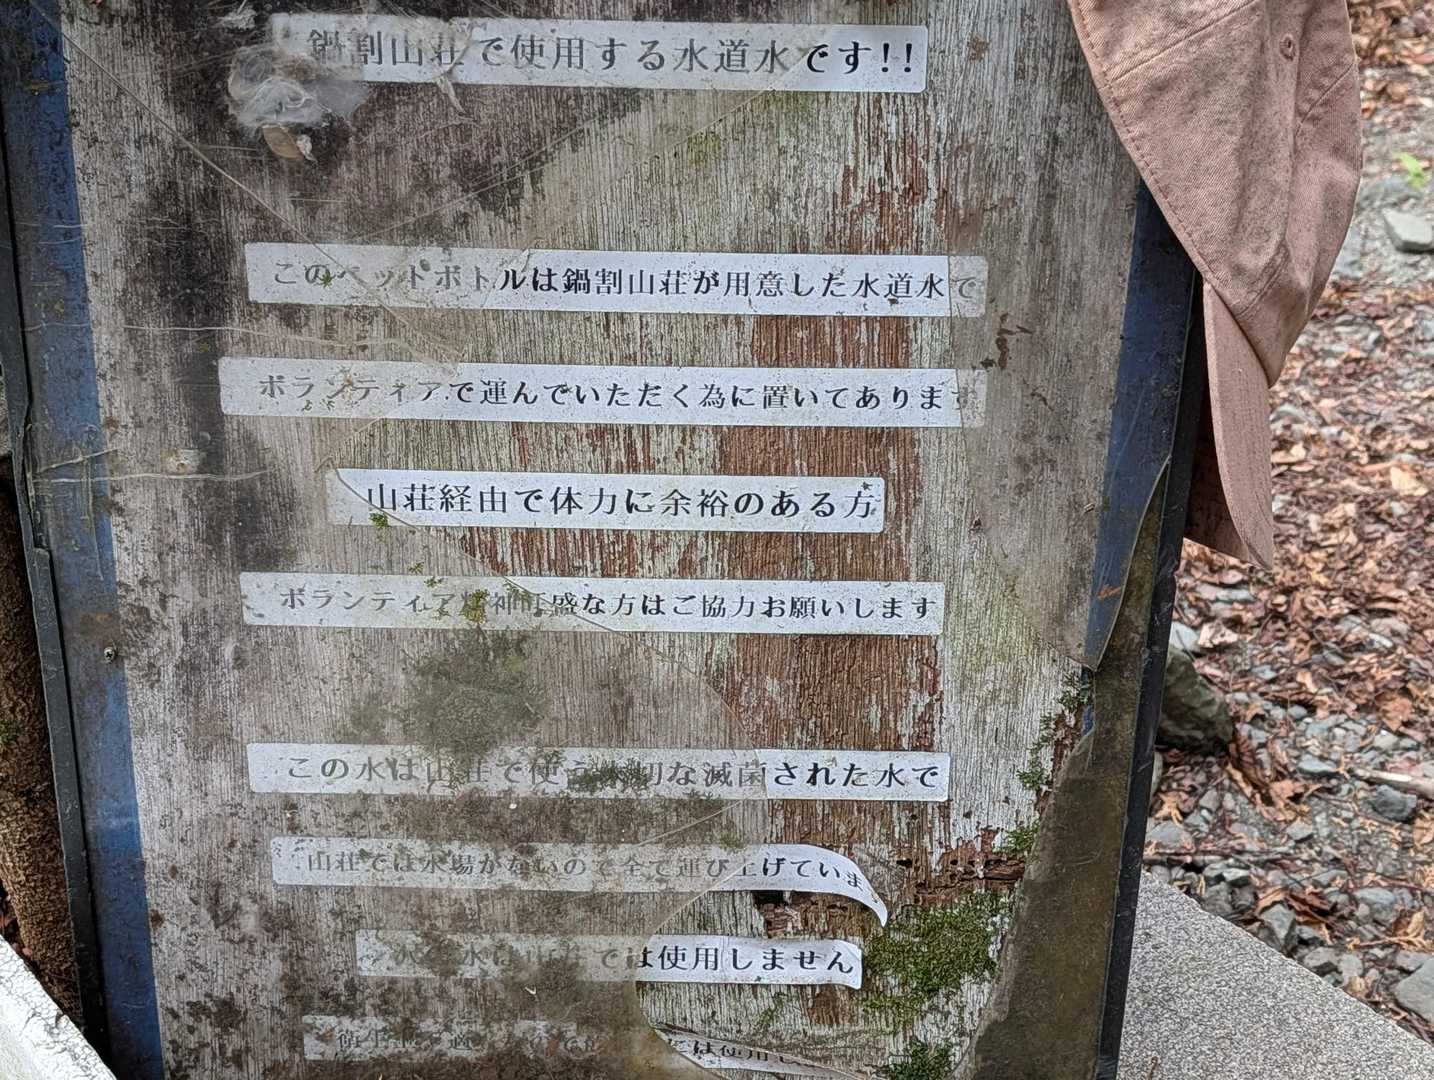 鍋割山荘で使用する水道水です!!
このペットボトルは鍋割山荘が用意した水道水で
ボランティアで運んでいただく為に置いてあります
山荘経由で体力に余裕のある方
ボランティア精神旺盛な方はご協力お願いします
この水は山荘で使う大切な滅菌された水で
山荘では水場がないので全て運び上げています
水は山荘では使用しません
は使用し